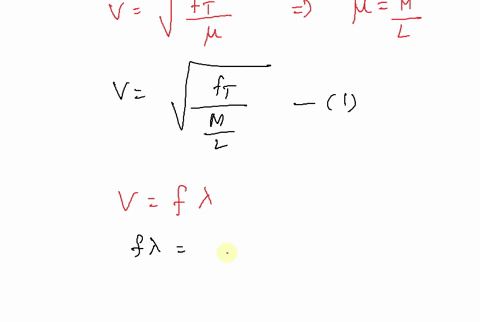 V = √(fT/μ) ⇒ μ = M/L
V = √(fT/(M/L)) — (1)
V = f λ
f λ =